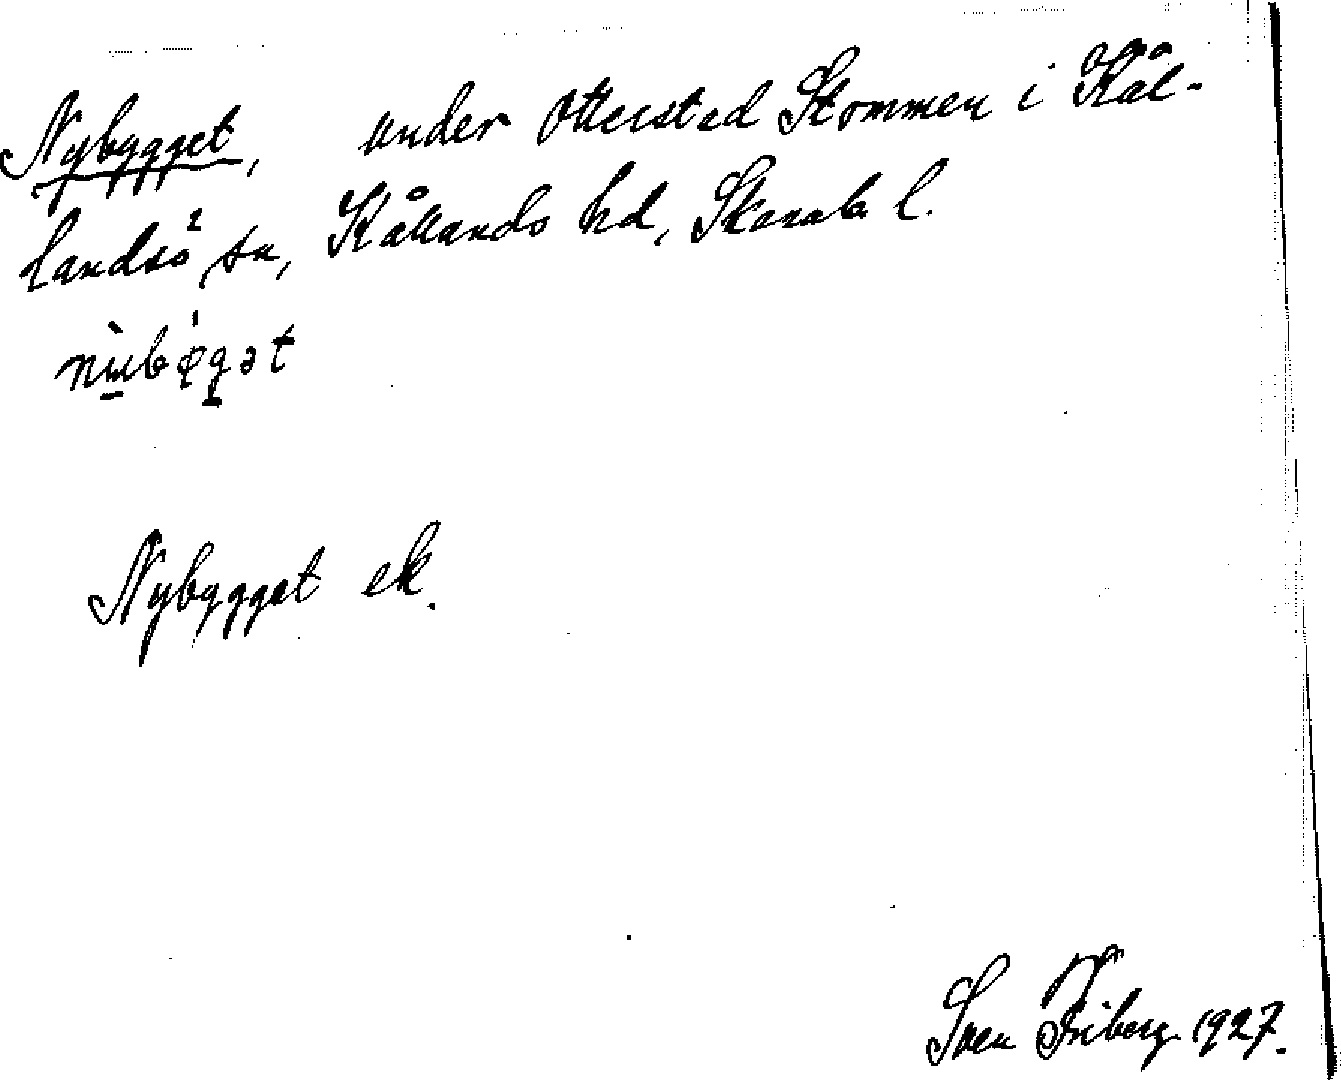 Nybygget, under Otterstad Stommen i Kål-
landsö sn, Kållands hd, Skarab. l.
nùbǿ̨gət
Nybygget ek.
Sven Friberg 1927.